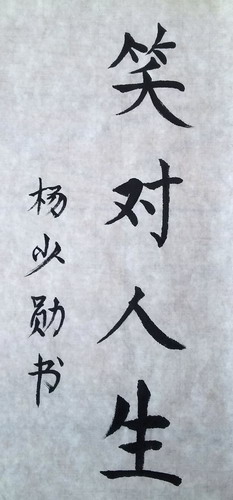 笑对人生
杨少勋书